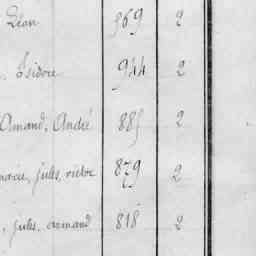 Léon 569 2
, Isidore 944 2
Amand, André 885 2
Jules, victor 879 2
, Jules, armand 818 2